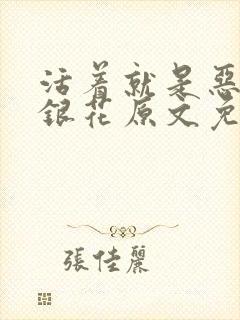 活着就是惡
銀花原文免
張佳麗